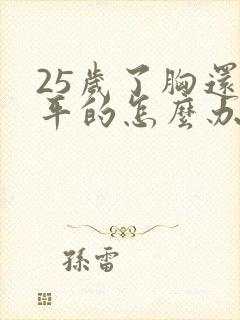 25歲了胸還
平的怎麼办
孫雷